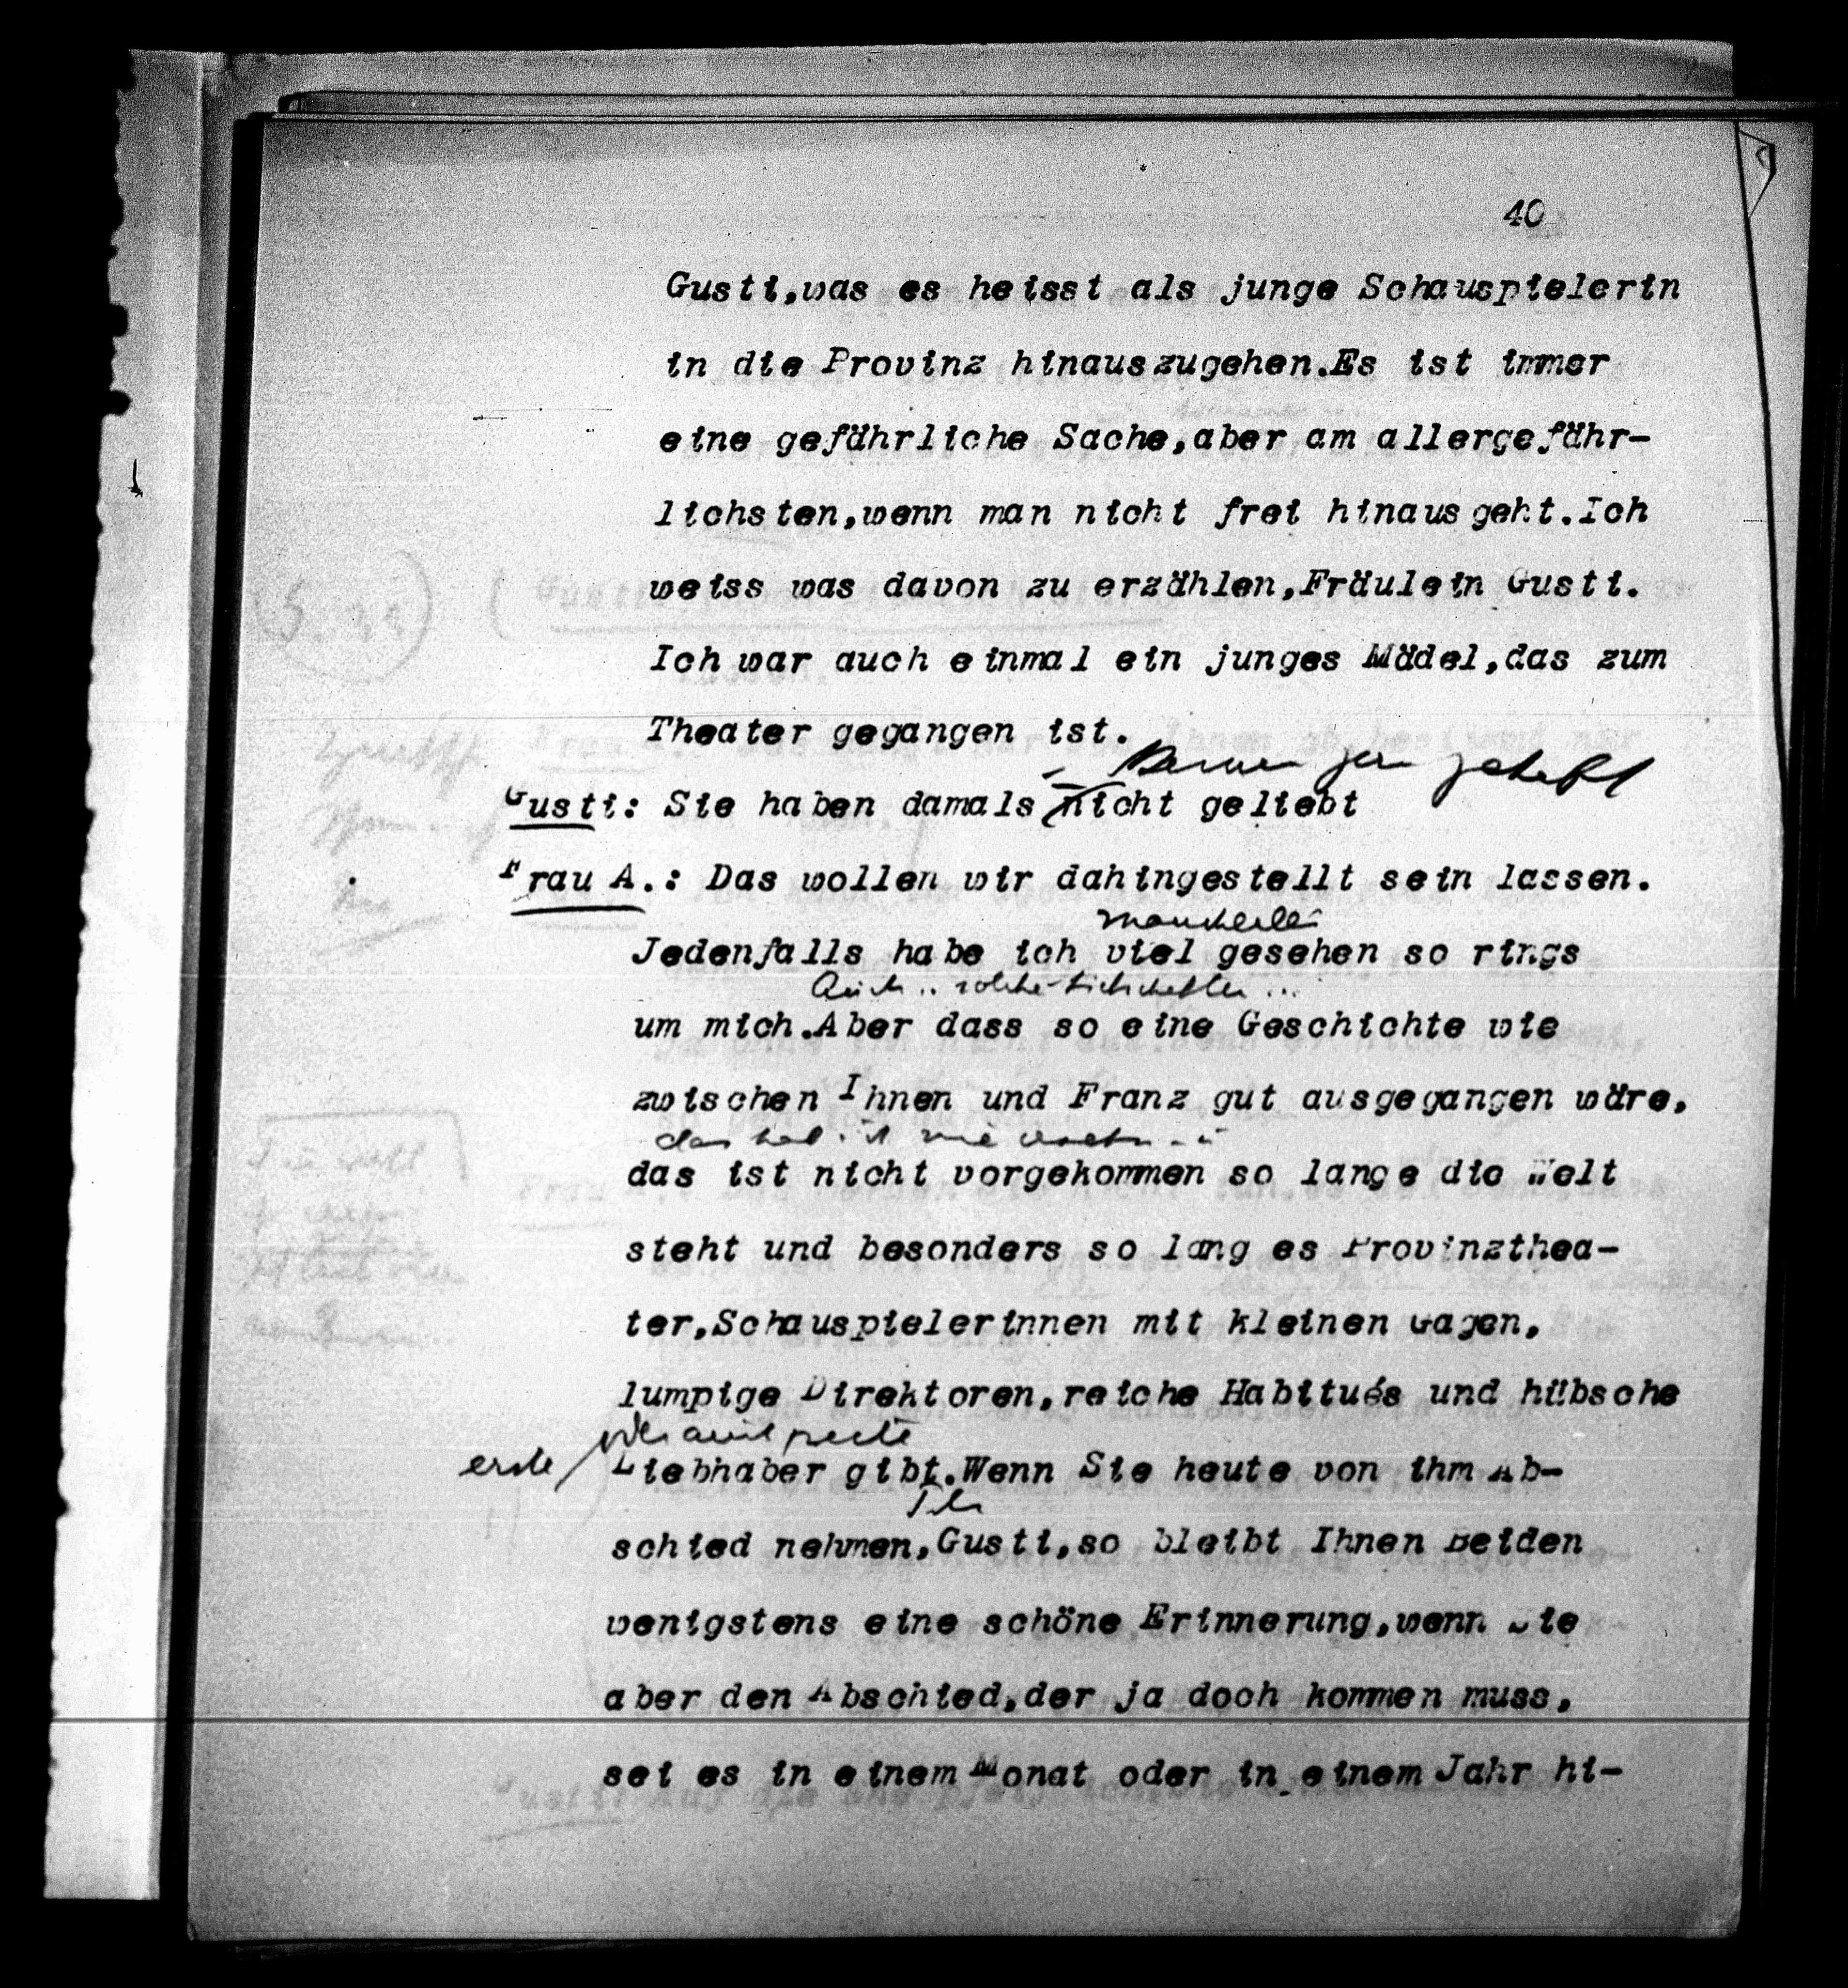 40
Gusti,was es heisst als junge Schauspielerin
in die Provinz hinauszugehen.Es ist immer
eine gefährliche Sache,aber am allergefähr-
lichsten,wenn man nicht frei hinausgeht.Ich
weiss was davon zu erzählen,Fräulein Gusti.
Ich war auch einmal ein junges Mädel,das zum
Theater gegangen ist.
Gusti: Sie haben damals nicht geliebt
Frau A.: Das wollen wir dahingestellt sein lassen.
mancherlei
Jedenfalls habe ich viel gesehen so rings
Auch .. solche
um mich.Aber dass so eine Geschichte wie
zwischen Ihnen und Franz gut ausgegangen wäre,
das hab ich nie
das ist nicht vorgekommen so lange die Welt
steht und besonders so lang es Provinzthea-
ter,Schauspielerinnen mit kleinen Gagen,
lumpige Direktoren,reiche Habitués und hübsche
erste Liebhaber gibt.Wenn Sie heute von ihm Ab-
schied nehmen,Gusti,so bleibt Ihnen Beiden
wenigstens eine schöne Erinnerung,wenn Sie
aber den Abschied,der ja doch kommen muss,
sei es in einem Monat oder in einem Jahr hi-